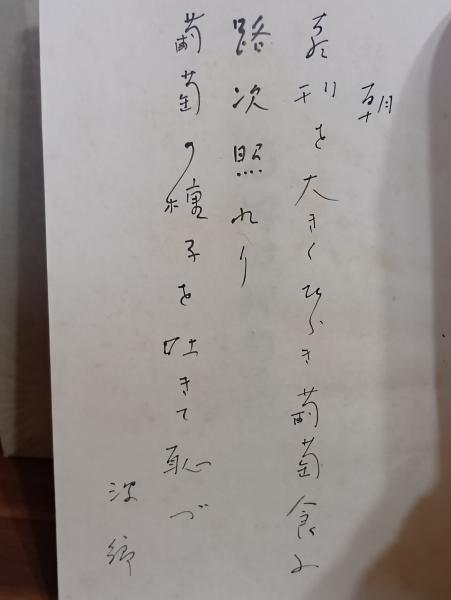 朝
刊を大きくひらき葡萄食ふ
路次照れり
葡萄の種子を吐きて恥づ
波郷